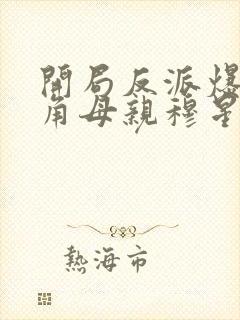 開局反派爆
角母親穆星
熱海市